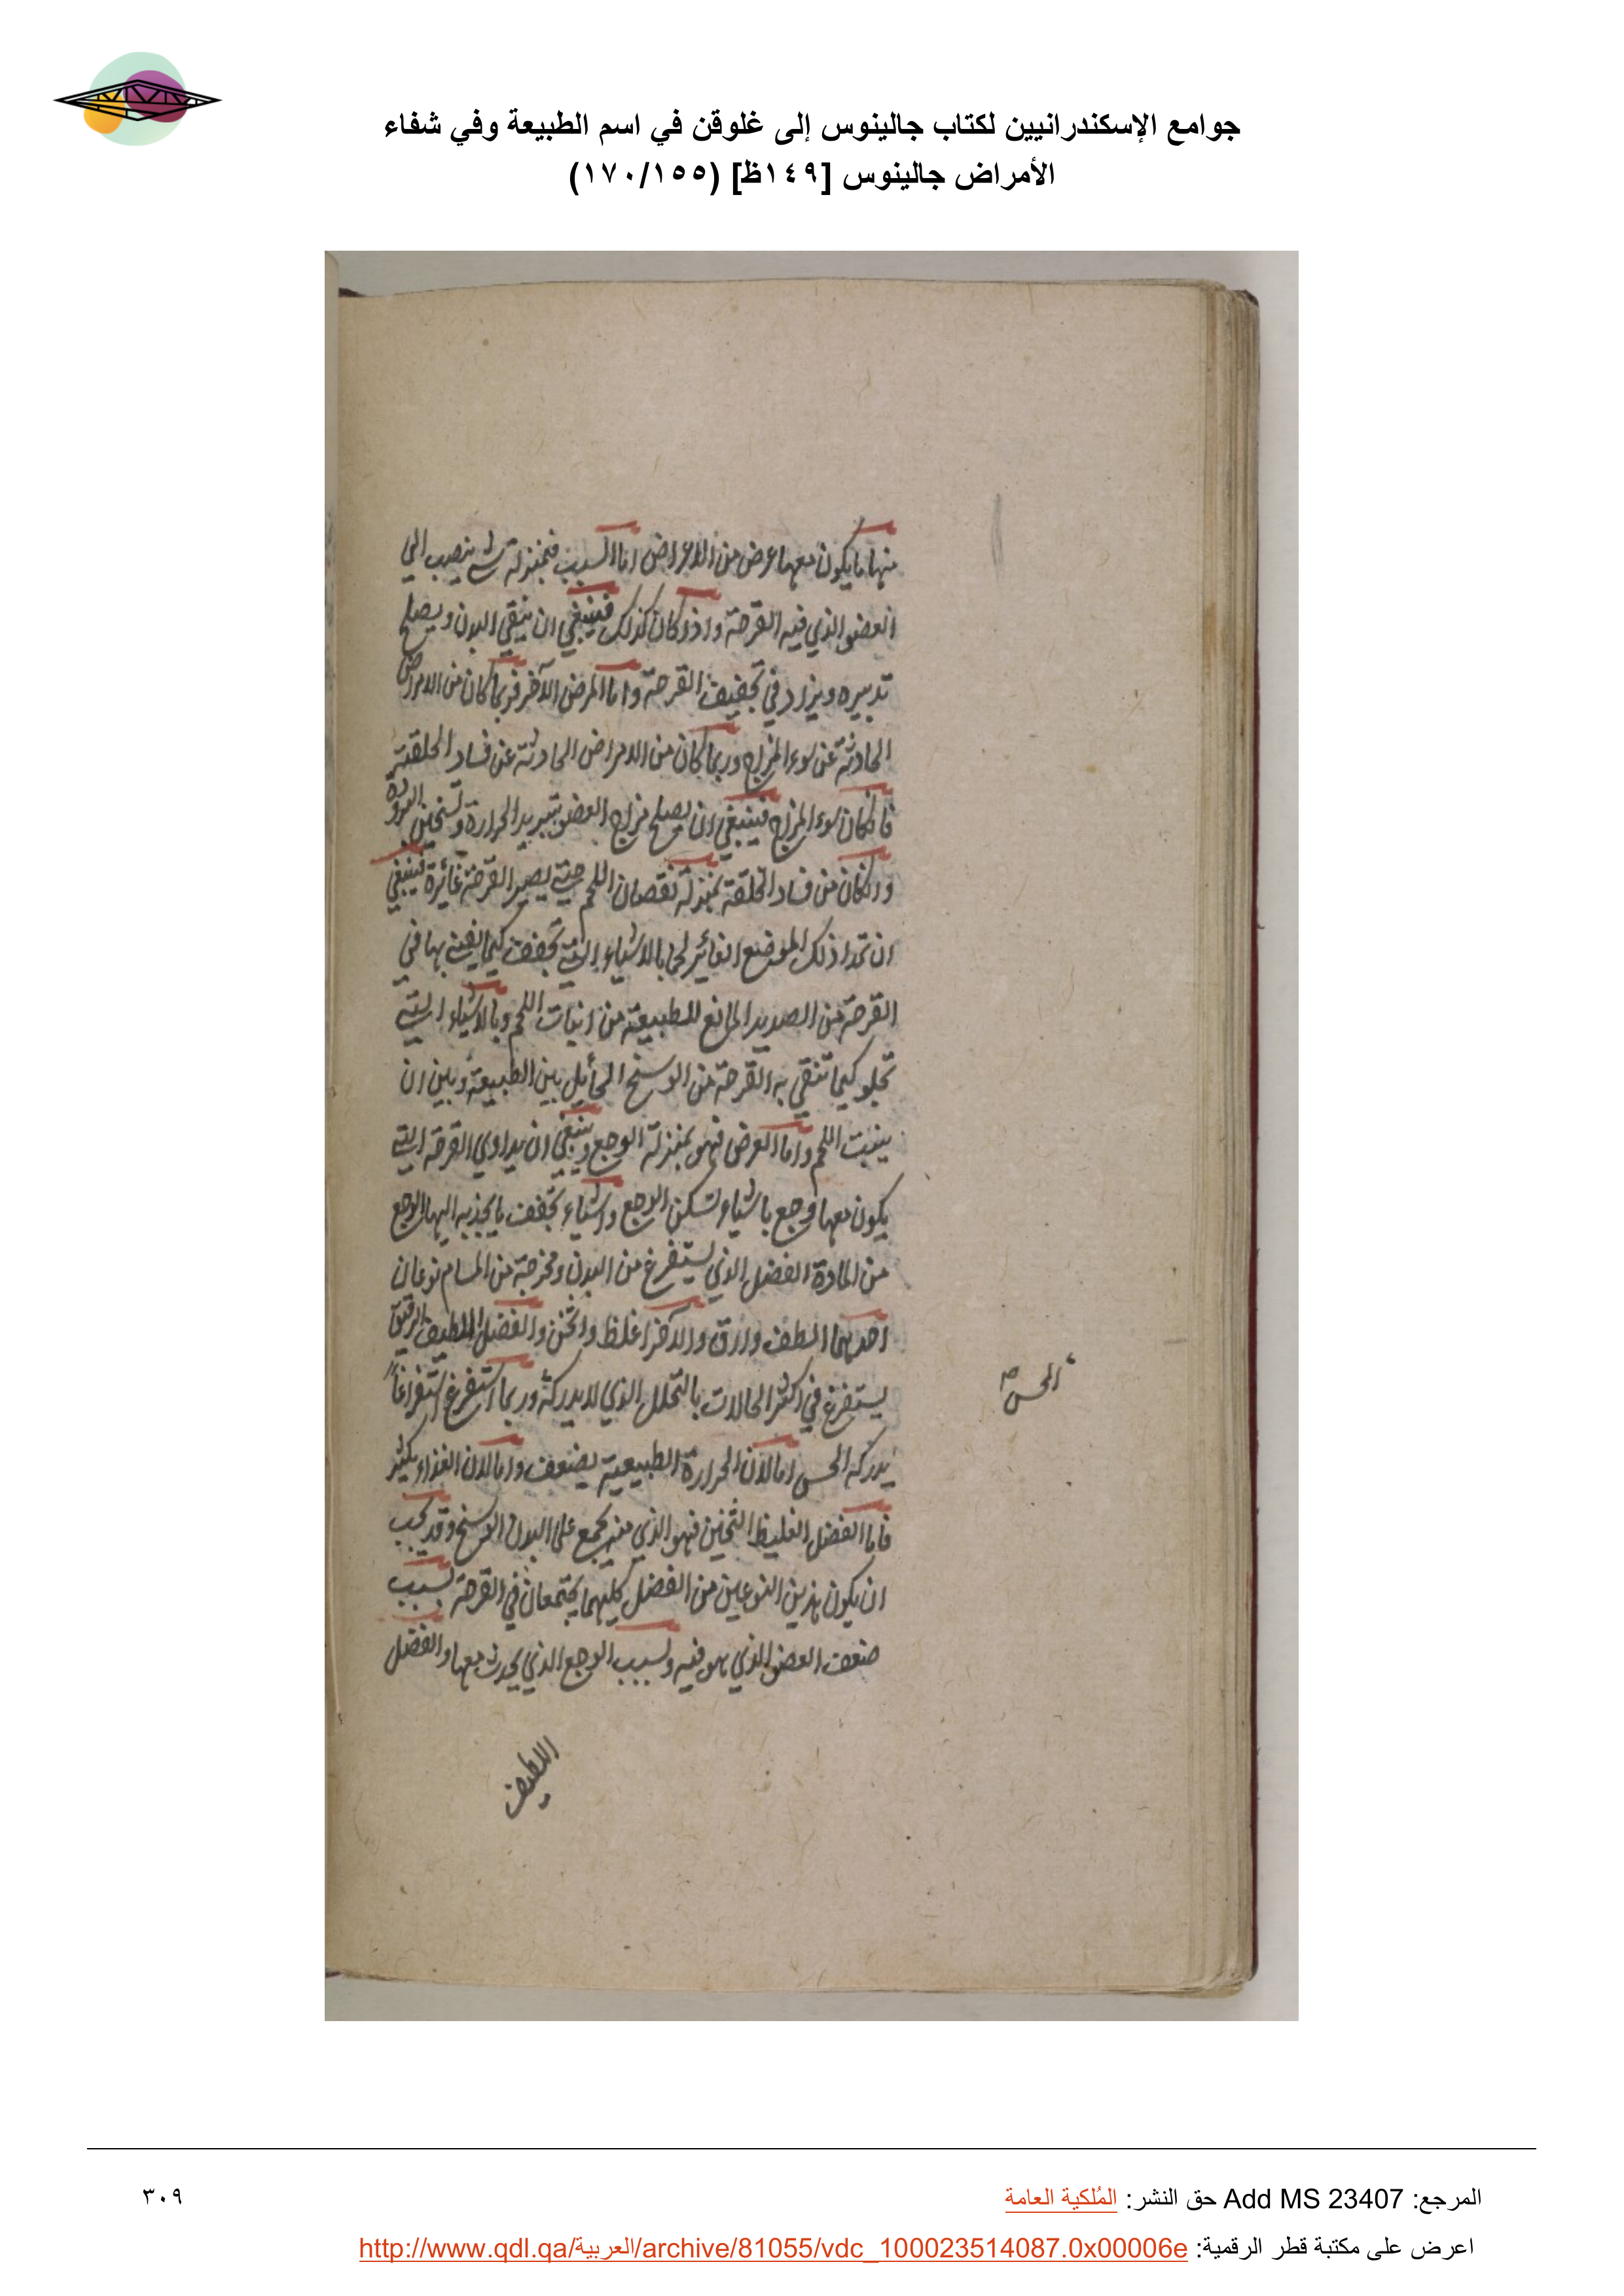 جوامع الإسكندرانيين لكتاب جالينوس إلى غلوقن في اسم الطبيعة وفي شفاء
الأمراض جالينوس [١٤٩ظ] (١٧٠/١٥٥)
منها ما يكون معها عرض من الاعراض اما السبب فبمنزلة شي ينصب الي
العضو الذي فيه القرحة واذا كان كذلك فينبغي ان ينقي البدن ويصلح
تدبيره ويزاد في تجفيف القرحة واما المرض الآخر فربما كان من الامراض
الحادثة عن سوء المزاج وربما كان من الامراض الحادثة عن فساد الخلقة
فان كان سوء المزاج فينبغي ان يصلح مزاج العضو بتبريد الحرارة وتسخين البرودة
وان كان من فساد الخلقة بمنزلة نقصان اللحم حتي يصير القرحة غائرة فينبغي
ان تملا ذلك الموضع الغائر لحما بالاشياء التي تجفف كيما يفني بها في
القرحة من الصديد المانع للطبيعة من انبات اللحم وبالاشياء التي
تجلو كيما تنقي به القرحة من الوسخ الحائل بين الطبيعة وبين ان
ينبت اللحم واما العرض فهو بمنزلة الوجع وينبغي ان يداوي القرحة التي
يكون معها وجع باشياء تسكن الوجع واشياء تجفف ما يجذبه اليها الوجع
من المادة الفضل الذي يستفرغ من البدن ومخرجة من المسام نوعان
احدهما الطف وارق والآخر اغلظ واثخن والفضل اللطيف الرقيق
يستفرغ في اكثر الحالات بالتحلل الذي لا يدركه وربما استفرغ استفراغاً
الحس صح
يدركه الحس اما لان الحرارة الطبيعية يضعف واما لان الغذاء يكثر
فاما الفضل الغليظ الثخين فهو الذي منه يجمع علي البدن الوسخ وقد يجب
ان يكون هذين النوعين من الفضل كليهما يجتمعان في القرحة بسبب
ضعف العضو الذي هو فيه وبسبب الوجع الذي يحدث معها والفضل
اللطيف
المرجع: Add MS 23407 حق النشر: المُلكية العامة
٣٠٩
اعرض على مكتبة قطر الرقمية: http://www.qdl.qa/العربية/archive/81055/vdc_100023514087.0x00006e